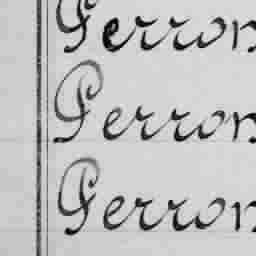 Perron
Perron
Perron